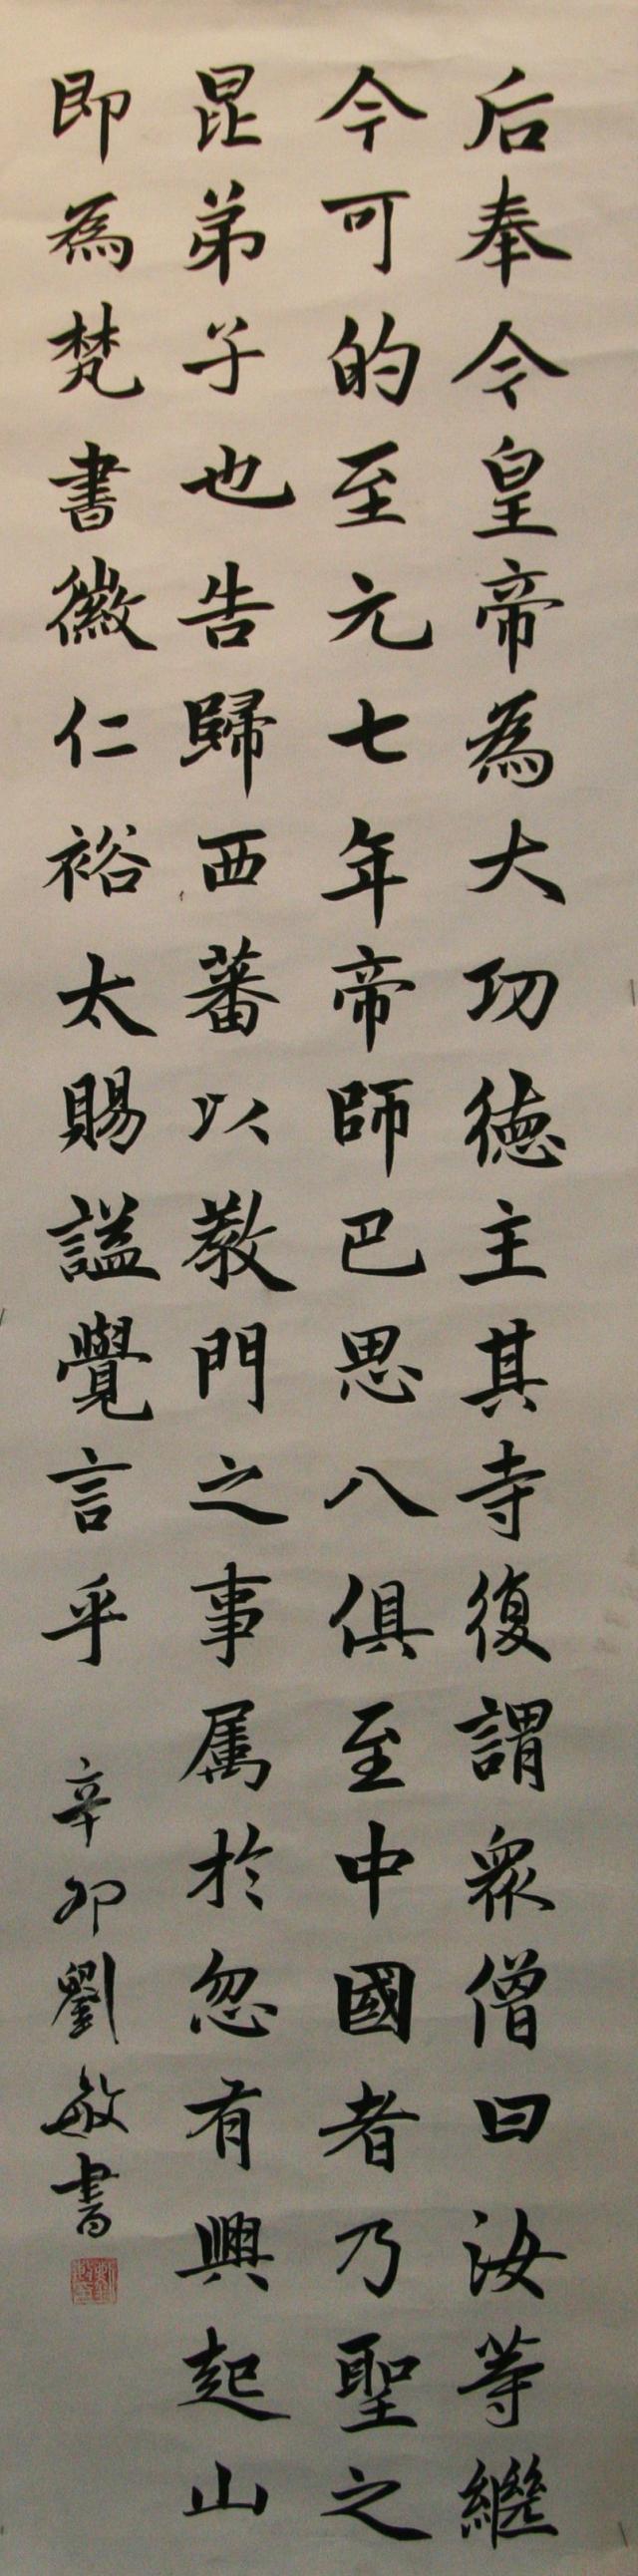 后奉今皇帝為大功德主其寺復謂衆僧曰汝等繼
今可的至元七年帝師巴思八俱至中國者乃聖之
昆弟子也告歸西蕃以教門之事属於忽有興起山
即為梵書徽仁裕太賜謚覺言乎
辛卯劉敏書